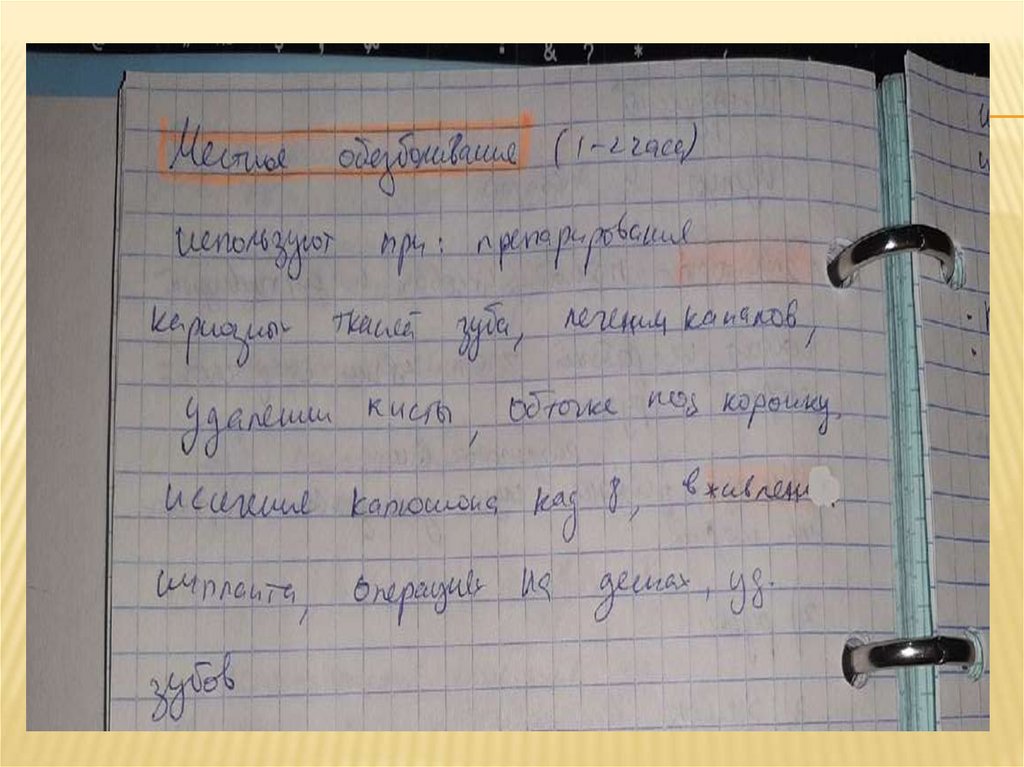 Местное обезболивание (1-2 часа)
используют при: препарирования
кариозных тканей зуба, лечении каналов,
удалении кисты, обточке под коронку,
иссечения капюшона над 8, вживлени
импланта, операциях на деснах, уд.
зубов